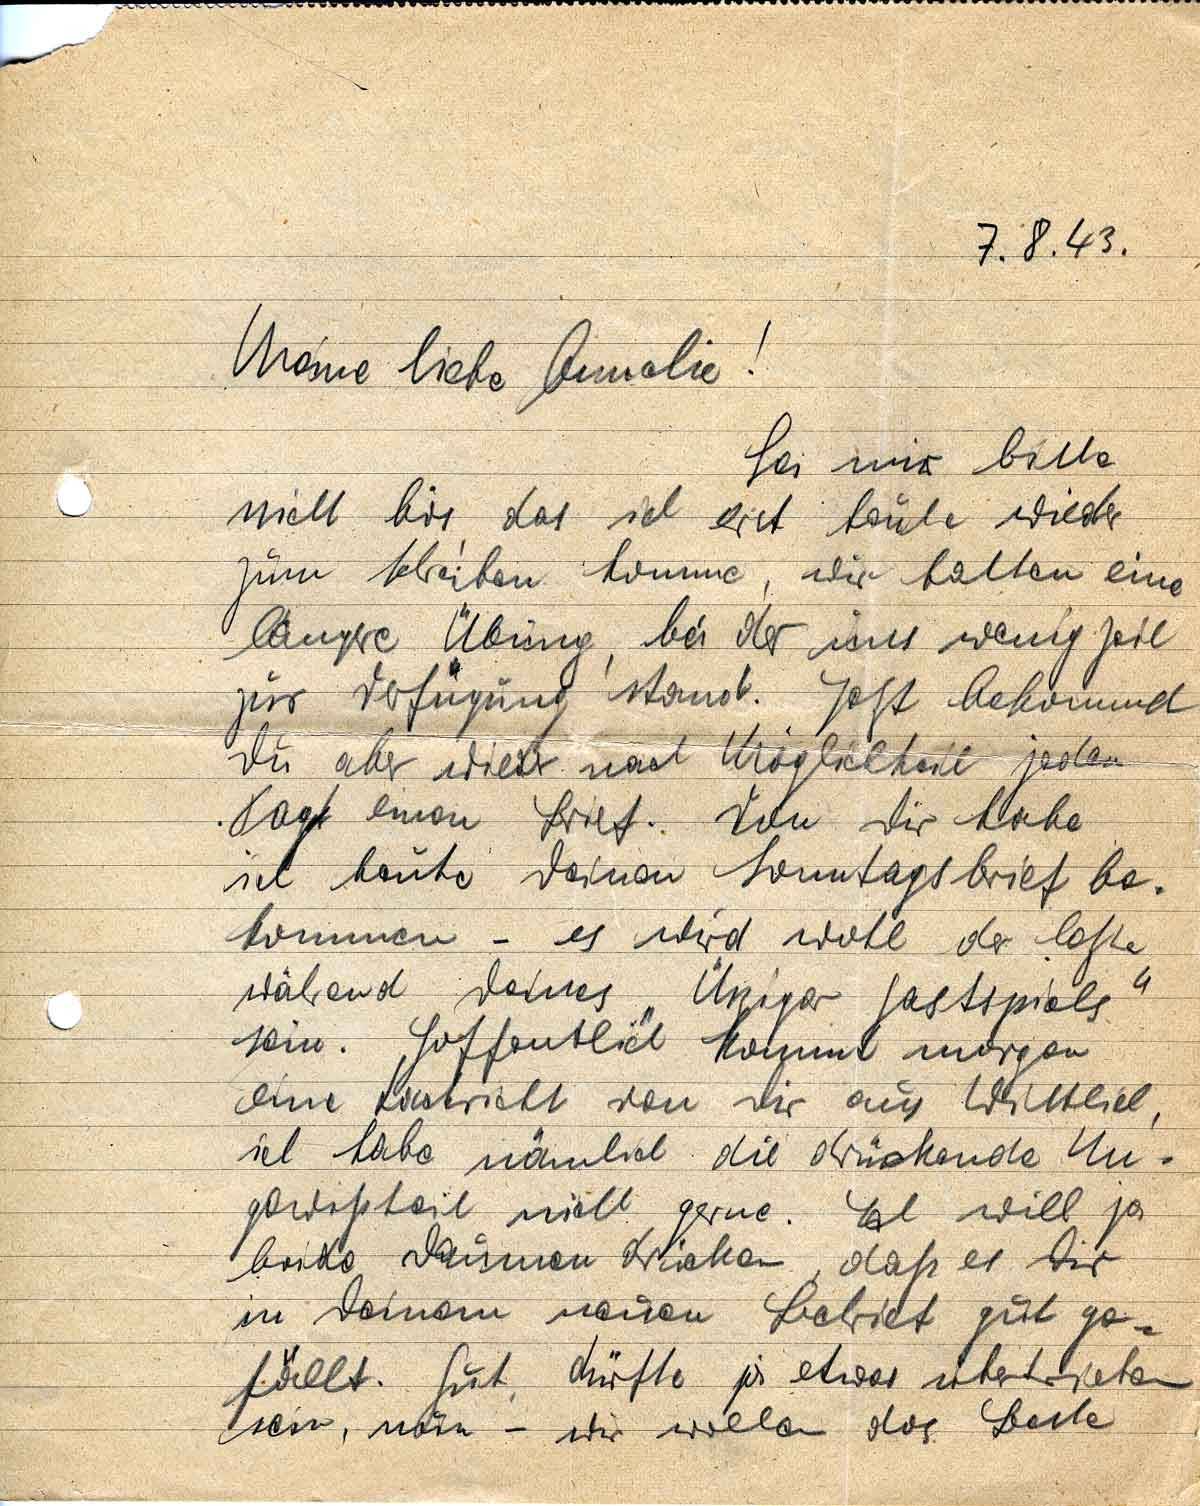 7.8.43.
Meine liebe Annelie!
Sei mir bitte
nicht bös, das ich erst heute wieder
zum schreiben komme, wir hatten eine
längere Übung, bei der uns wenig Zeit
zur Verfügung stand. Jetzt bekommst
Du aber wieder nach Möglichkeit jeden
Tag einen Brief. Von Dir habe
ich heute Deinen Sonntagsbrief be-
kommen - es wird wohl der letzte
während Deines „Ürziger Gastspiels"
sein. Hoffentlich kommt morgen
eine Nachricht von Dir aus Wittlich,
ich habe nämlich die drückende Un-
gewißheit nicht gerne. Ich will ja
beide Daumen drücken, daß es Dir
in Deinem neuen Betrieb gut ge-
fällt. Gut, dürfte ja etwas übertrieben
sein, nein - wir wollen das Beste